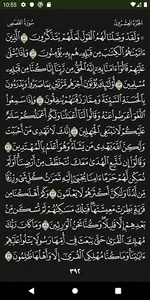 10:55
الجزء العشرون سورة القصص
۞ وَلَقَدْ وَصَّلْنَا لَهُمُ ٱلْقَوْلَ لَعَلَّهُمْ يَتَذَكَّرُونَ ٥١ ٱلَّذِينَ
ءَاتَيْنَٰهُمُ ٱلْكِتَٰبَ مِن قَبْلِهِۦ هُم بِهِۦ يُؤْمِنُونَ ٥٢ وَإِذَا يُتْلَىٰ
عَلَيْهِمْ قَالُوٓا۟ ءَامَنَّا بِهِۦٓ إِنَّهُ ٱلْحَقُّ مِن رَّبِّنَآ إِنَّا كُنَّا مِن قَبْلِهِۦ
مُسْلِمِينَ ٥٣ أُو۟لَٰٓئِكَ يُؤْتَوْنَ أَجْرَهُم مَّرَّتَيْنِ بِمَا صَبَرُوا۟
وَيَدْرَءُونَ بِٱلْحَسَنَةِ ٱلسَّيِّئَةَ وَمِمَّا رَزَقْنَٰهُمْ يُنفِقُونَ ٥٤ وَإِذَا سَمِعُوا۟
ٱللَّغْوَ أَعْرَضُوا۟ عَنْهُ وَقَالُوا۟ لَنَآ أَعْمَٰلُنَا وَلَكُمْ أَعْمَٰلُكُمْ
سَلَٰمٌ عَلَيْكُمْ لَا نَبْتَغِى ٱلْجَٰهِلِينَ ٥٥ إِنَّكَ لَا تَهْدِى مَنْ أَحْبَبْتَ
وَلَٰكِنَّ ٱللَّهَ يَهْدِى مَن يَشَآءُ وَهُوَ أَعْلَمُ بِٱلْمُهْتَدِينَ ٥٦
وَقَالُوٓا۟ إِن نَّتَّبِعِ ٱلْهُدَىٰ مَعَكَ نُتَخَطَّفْ مِنْ أَرْضِنَآ أَوَلَمْ
نُمَكِّن لَّهُمْ حَرَمًا ءَامِنًا يُجْبَىٰٓ إِلَيْهِ ثَمَرَٰتُ كُلِّ شَىْءٍ رِّزْقًا
مِّن لَّدُنَّا وَلَٰكِنَّ أَكْثَرَهُمْ لَا يَعْلَمُونَ ٥٧ وَكَمْ أَهْلَكْنَا مِن
قَرْيَةٍۭ بَطِرَتْ مَعِيشَتَهَا فَتِلْكَ مَسَٰكِنُهُمْ لَمْ تُسْكَن مِّنۢ
بَعْدِهِمْ إِلَّا قَلِيلًا وَكُنَّا نَحْنُ ٱلْوَٰرِثِينَ ٥٨ وَمَا كَانَ رَبُّكَ
مُهْلِكَ ٱلْقُرَىٰ حَتَّىٰ يَبْعَثَ فِىٓ أُمِّهَا رَسُولًا يَتْلُوا۟ عَلَيْهِمْ
ءَايَٰتِنَا وَمَا كُنَّا مُهْلِكِى ٱلْقُرَىٰٓ إِلَّا وَأَهْلُهَا ظَٰلِمُونَ ٥٩
٣٩٢